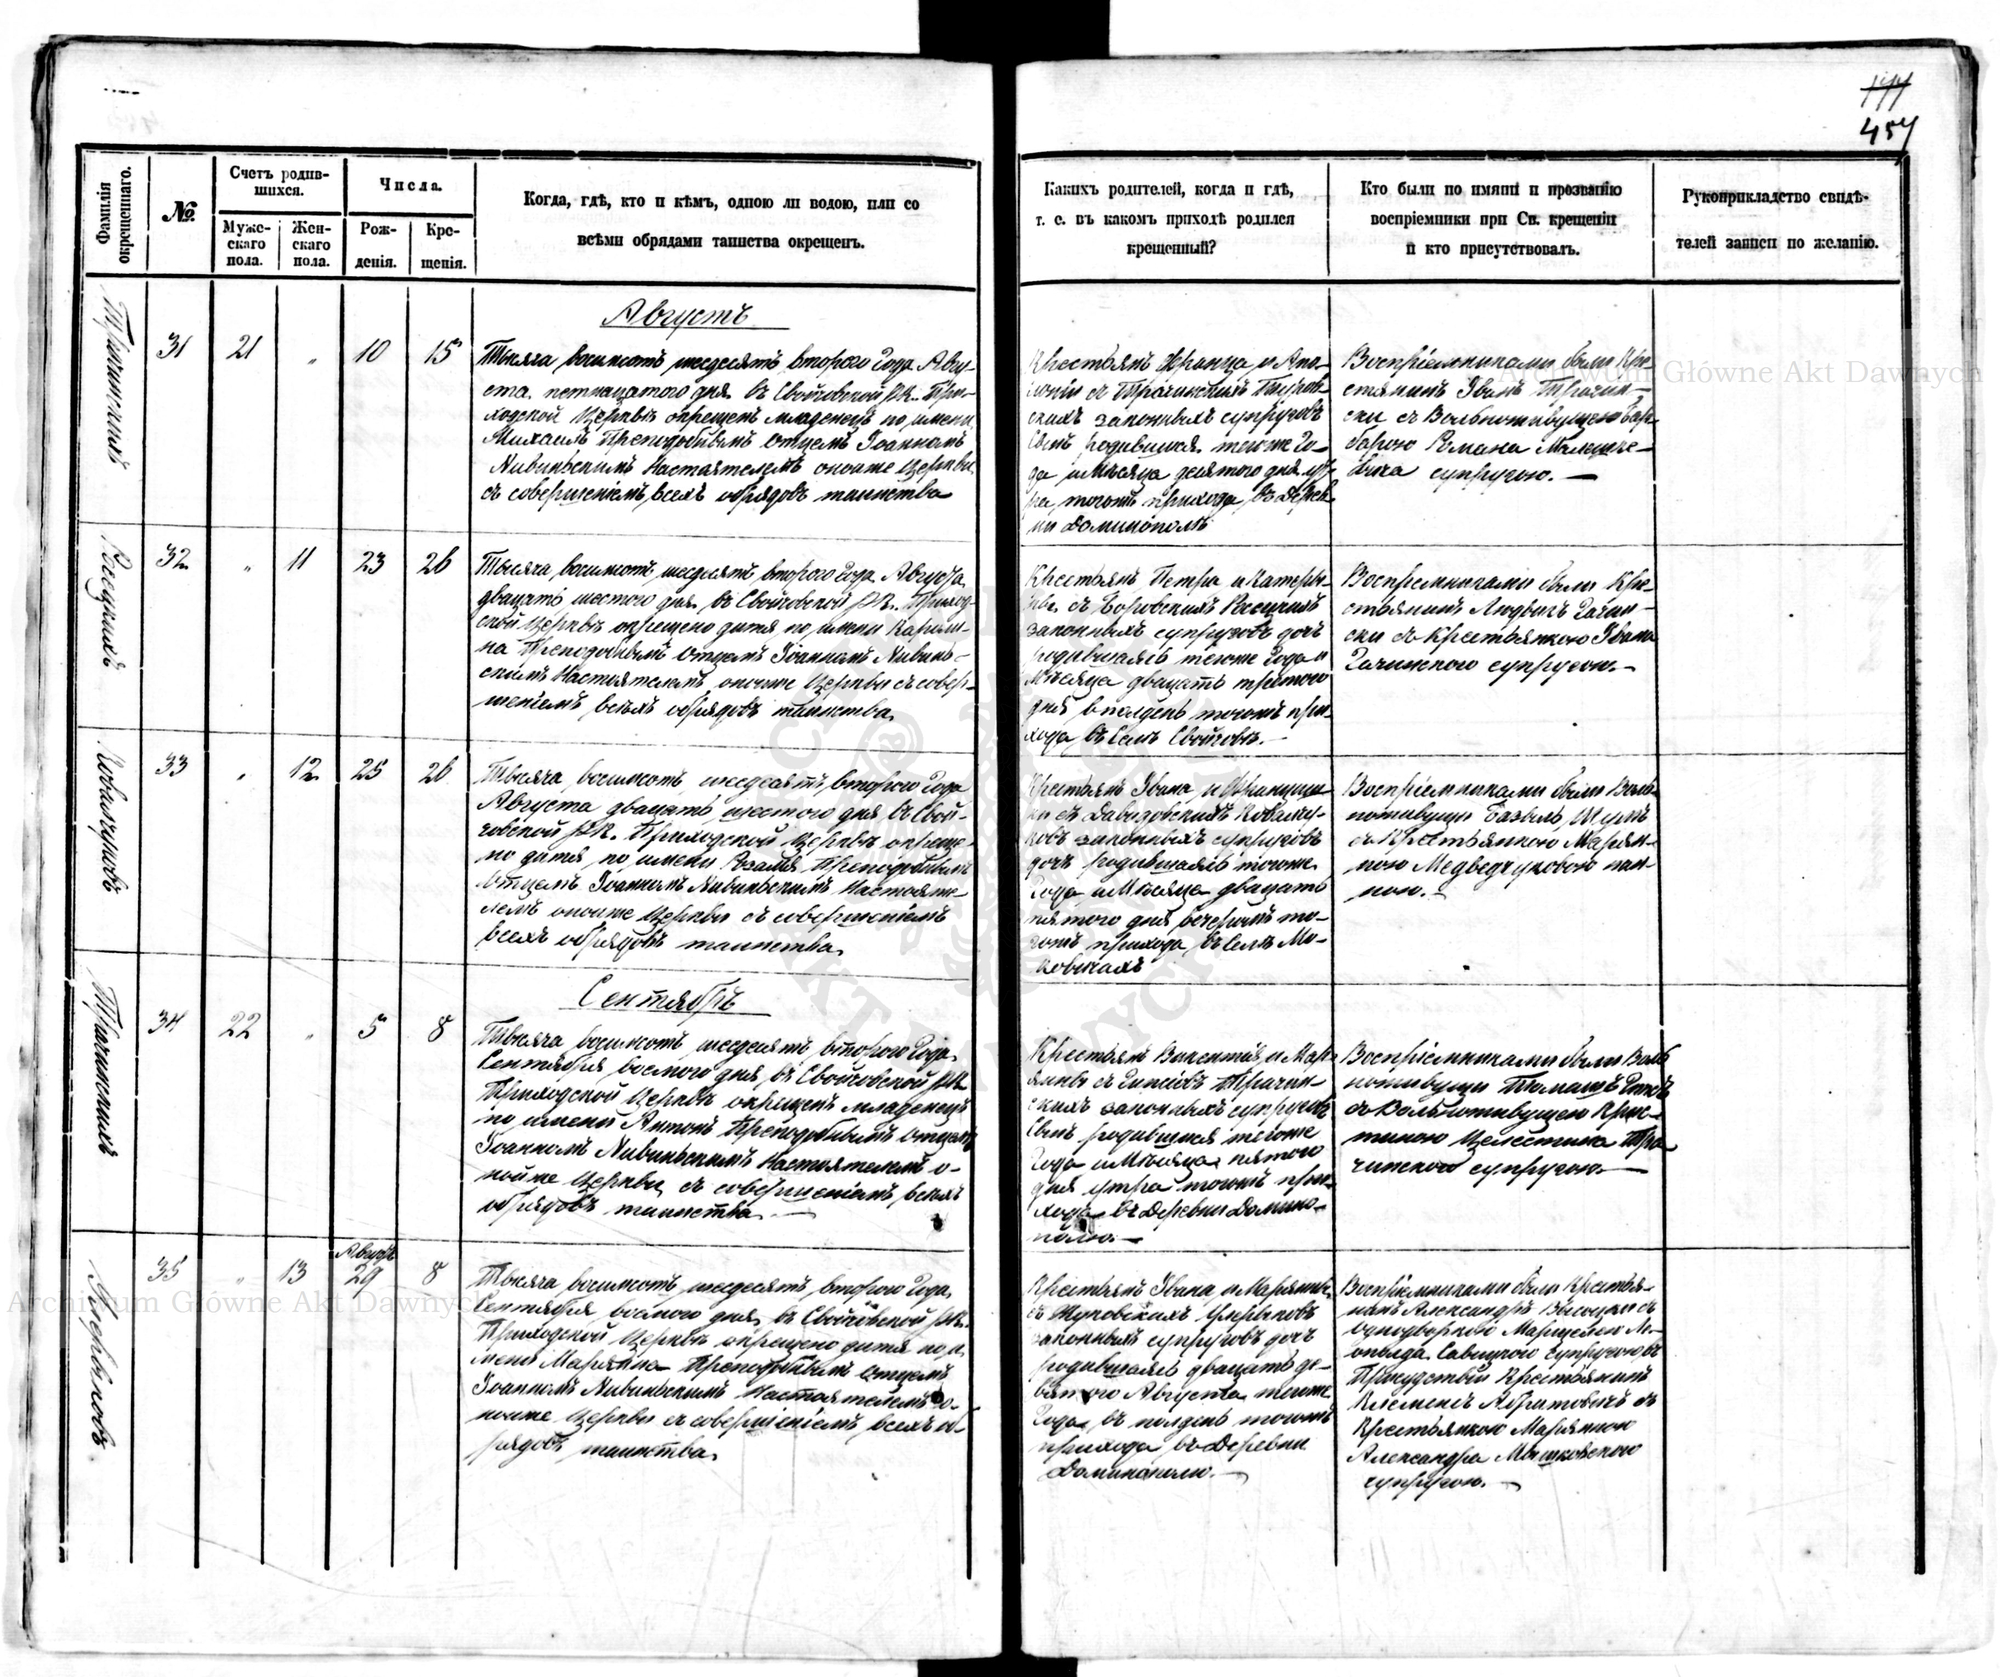 177
457
Фамилія окрещеннаго.
№.
Счетъ родив-
шихся.
Муже-
скаго
пола.
Жен-
скаго
пола.
Числа.
Рож-
денія.
Кре-
щенія.
Когда, гдѣ, кто и кѣмъ, одною ли водою, или со
всѣми обрядами таинства окрещенъ.
Какихъ родителей, когда и гдѣ,
т. е. въ какомъ приходѣ родился
крещенный?
Кто были по имяни и прозванію
воспріемники при Св. крещеніи
и кто присутствовалъ.
Рукоприкладство свидѣ-
телей записи по желанію.
Августъ
31 21 „ 10 15
Тысяча восимсотъ шесдесятъ второго Года Авгу-
ста петнацатого дня въ Свойчовской РК. При-
ходской Церквѣ окрещенъ младенецъ по имени
Михаилъ Преподобнымъ Отцемъ Іоанномъ
Настоятелемъ оноиже Церкви
съ совершеніемъ всехъ обрядовъ таинства
Крестьянъ Франца и Апо-
лоніи съ
скихъ законныхъ супруговъ
Сынъ родившися тогоже Го-
да и Мѣсяца десятого дня ут-
ра, тогожъ прихода, въ Дерев-
ни Доминополѣ
Воспріемниками были Кре-
стянинъ Іванъ Трачин-
ски съ Вольноживущею Бар-
барою Романа
супругою. —
32 „ 11 23 26
Тысяча восимсотъ шесдесятъ второго Года Августа
двацать шестого дня въ Свойчовской РК. Приход-
ской Церквѣ окрещено дитя по имени Кароли-
на Преподобнымъ Отцемъ Іоанномъ
Настоятелемъ оноиже Церкви съ совер-
шеніемъ всехъ обрядовъ таинства
Крестьянъ Петра и Катеры-
ны съ Боровскихъ
законныхъ супруговъ дочъ
родившаясь тогоже Года и
Мѣсяца двацать третого
дня вполдень тогожъ при-
хода, въ Селѣ Свойчовѣ. —
Воспріемниками были Кре-
стьянинъ Людвигъ
ски съ Крестьянкою Івана
супругою. —
33 „ 12 25 26
Тысяча восимсотъ шесдесятъ второго Года
Августа двацать шестого дня въ Свой-
човской РК. Приходской Церквѣ окреще-
но дитя по имени Розалія Преподобнымъ
Отцемъ Іоанномъ Настояте-
лемъ оноиже Церкви съ совершеніемъ
всехъ обрядовъ таинства
Крестьянъ Івана и Францыш-
ки съ Давидовскихъ Ковальчу-
ковъ законныхъ супруговъ
дочъ родившаясь тогоже
Года и Мѣсяца двацать
пятого дня вечеромъ то-
гожъ прихода, въ Селѣ Мо-
ковичахъ
Воспріемниками были Воль-
ноживущи
съ Крестьянкою Марян-
ною Медведчуковою пан-
ною. —
Сентябрь
34 22 „ 5 8
Тысяча восимсотъ шесдесятъ второго Года
Сентября восмого дня въ Свойчовской РК.
Приходской Церквѣ окрещенъ младенецъ
по имени Антонъ Преподобнымъ Отцемъ
Іоанномъ Настоятелемъ о-
ноиже Церкви съ совершеніемъ всехъ
обрядовъ таинства. —
Крестьянъ Викентія и Мар-
янны съ Трачин-
скихъ законныхъ супруговъ
Сынъ родившися тогоже
Года и Мѣсяца пятого
дня утра тогожъ при-
хода въ Деревни Домино-
полю. —
Воспріемниками были Воль-
ноживущи Томашъ
съ Вольноживущею Крис-
тиною Целестина Тра-
чинского супругою. —
35 „ 13 Август 29 8
Тысяча восимсотъ шесдесятъ второго Года
Сентября восмого дня въ Свойчовской РК.
Приходской Церквѣ окрещено дитя по и-
мени Маріанна Преподобнымъ Отцемъ
Іоанномъ Настоятелемъ о-
ноиже Церкви съ совершеніемъ всехъ об-
рядовъ таинства.
Крестьянъ Івана и Марянны
съ
законныхъ супруговъ дочъ
родившаясь двацать де-
вятого Августа тогоже
Года въ полдень тогожъ
прихода въ Деревни
Доминополю. —
Воспріемниками были Крестья-
нинъ Александръ съ
однодворкою Марцелею Ле-
опольда Савицкого супругою въ
Присудствіи Крестьянинъ
Клеменсъ съ
Крестьянкою Марянною
Александра Мышковского
супругою. —
Archiwum Główne Akt Dawnych
Archiwum Główne Akt Dawnych